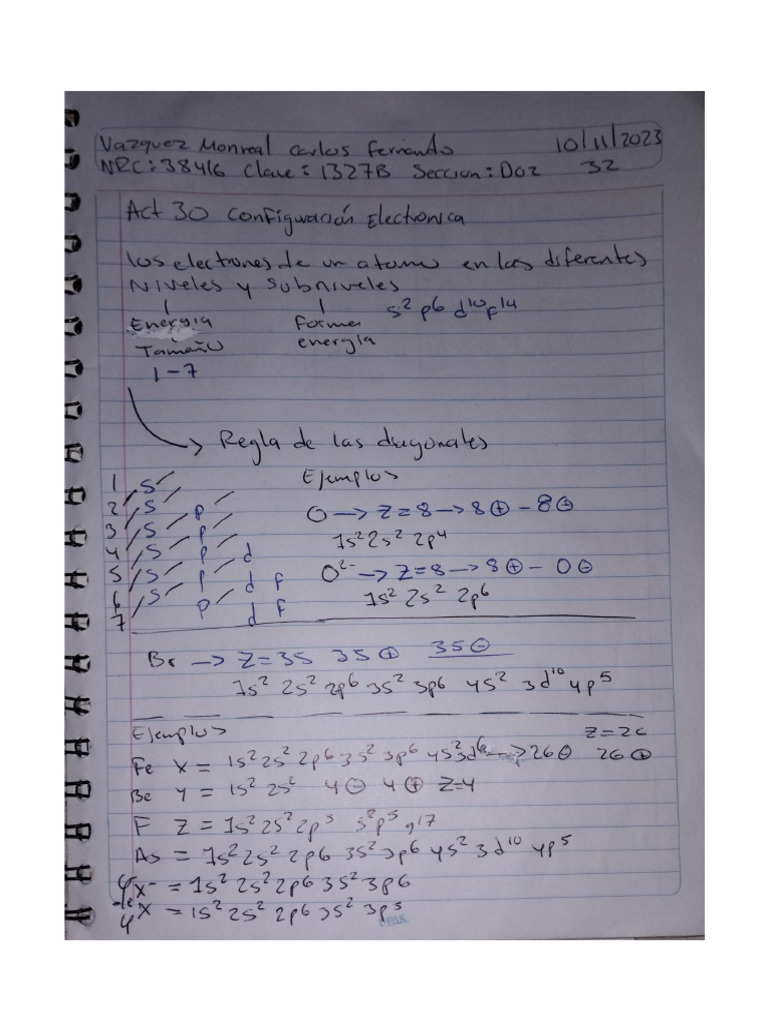 Vazquez Monreal Carlos Fernando 10/11/2023
NRC: 38416 Clave: I327B Seccion: D02 32
Act 30 Configuración Electronica
los electrones de un atomo en las diferentes
Niveles y subniveles s² p⁶ d¹⁰ f¹⁴
Energia Forma
Tamaño energía
1-7
Regla de las diagonales
1 s Ejemplos
2 s p O → Z=8 → 8⊕ - 8⊖
3 s p 1s² 2s² 2p⁴
4 s p d
5 s p d f O²⁻ → Z=8 → 8⊕ - 0⊖
6 s p d f 1s² 2s² 2p⁶
7
Br → Z=35 35⊕ 35⊖
1s² 2s² 2p⁶ 3s² 3p⁶ 4s² 3d¹⁰ 4p⁵
Ejemplos Z=26
Fe X = 1s² 2s² 2p⁶ 3s² 3p⁶ 4s² 3d⁶ → 26⊖ 26⊕
Be Y = 1s² 2s² 4⊖ 4⊕ Z=4
F Z = 1s² 2s² 2p⁵ s² p⁵ 17
As = 1s² 2s² 2p⁶ 3s² 3p⁶ 4s² 3d¹⁰ 4p⁵
X⁻ = 1s² 2s² 2p⁶ 3s² 3p⁶
X = 1s² 2s² 2p⁶ 3s² 3p⁵